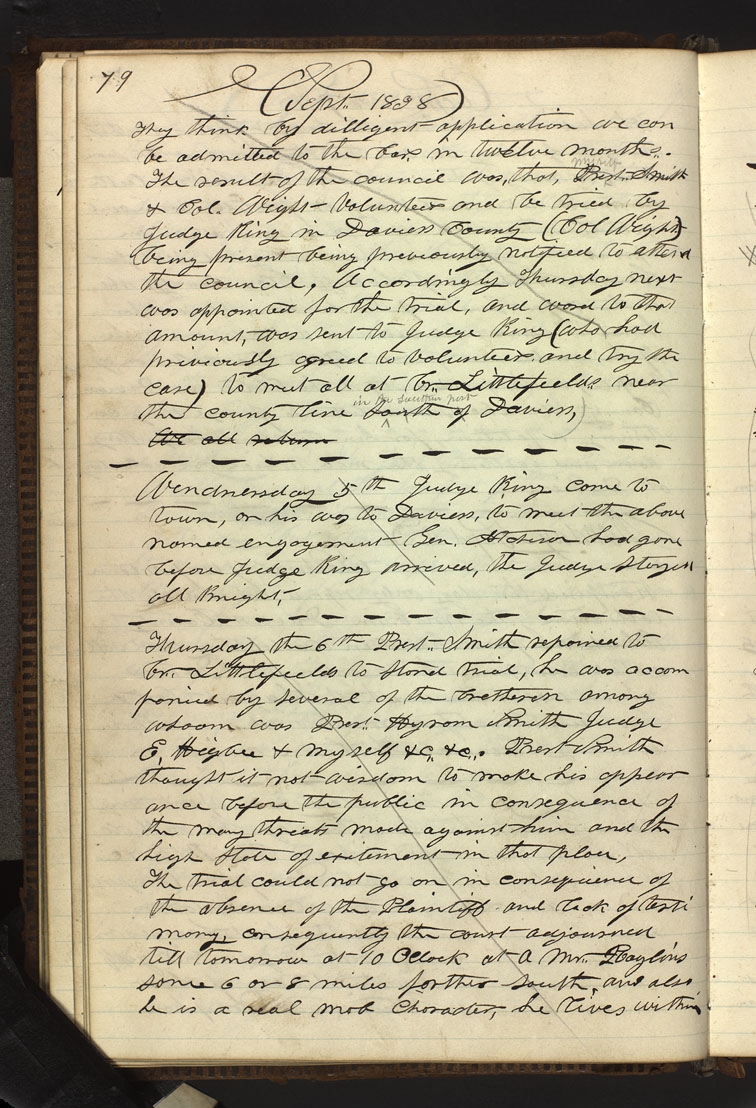 79
(Sept. 1838)
They think by dilligent application we can
be admitted to the bar in twelve months.
The result of the council was, that, myself Prest. Smith
& Col. Wight Volunteer and be tried by
Judge King in Daviess County (Col Wight)
being present being previously notified to attend
the council, Accordingly Thursday next
was appointed for the trial, and word to that
amount, was sent to Judge King (who had
previously agreed to volunteer and try the
case) to meet all at br. Littlefields near
the county line in the southern part South of Daviess,
We all return
Wendnersday 5th Judge King come to
town, on his way to Daviess, to meet the above
named engagement Gen. Atchison had gone
before Judge King arrived, the Judge stayed
all knight,
Thursday the 6th Prest. Smith repaired to
br. Littlefields to stand trial, he was accom
panied by several of the bretheren among
whoom was Prest. Hyrom Smith Judge
E. Higbee & myself &c. &c. Prest Smith
thought it not wisdom to make his appear
ance before the public in consequence of
the many threats made against him and the
high state of exitement in that place,
The trial could not go on in consequience of
the absence of the Plaintiff and lack of testi
mony, consequently the court adjourned
till tomorrow at 10 Oclock at a Mr. Raglins
some 6 or 8 miles farther south, and also
he is a real mob Charader, he lives within